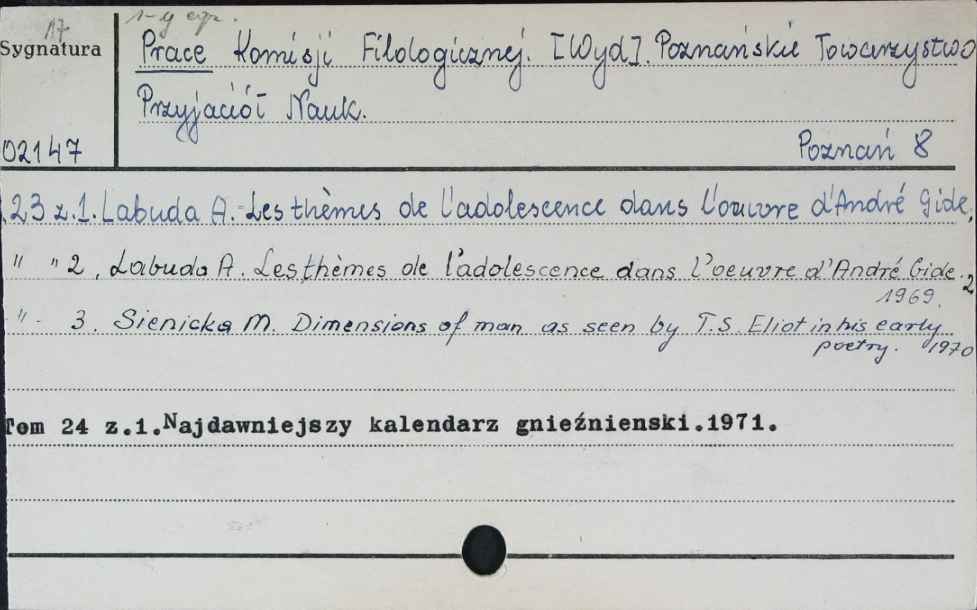 17
1-y egz.
Sygnatura
Prace Komisji Filologicznej. [Wyd]. Poznańskie Towarzystwo
Przyjaciół Nauk.
02147
Poznań 8
.23 z.1. Labuda A.-Les thèmes de l'adolescence dans l'ouvre d'André Gide,
" " 2, Labuda A. Les thèmes de l'adolescence dans l'oeuvre d'André Gide. 2
1969.
" - 3. Sienicka M. Dimensions of man as seen by T.S. Eliot in his early
poetry. 1970
Tom 24 z.1.Najdawniejszy kalendarz gnieźnienski.1971.